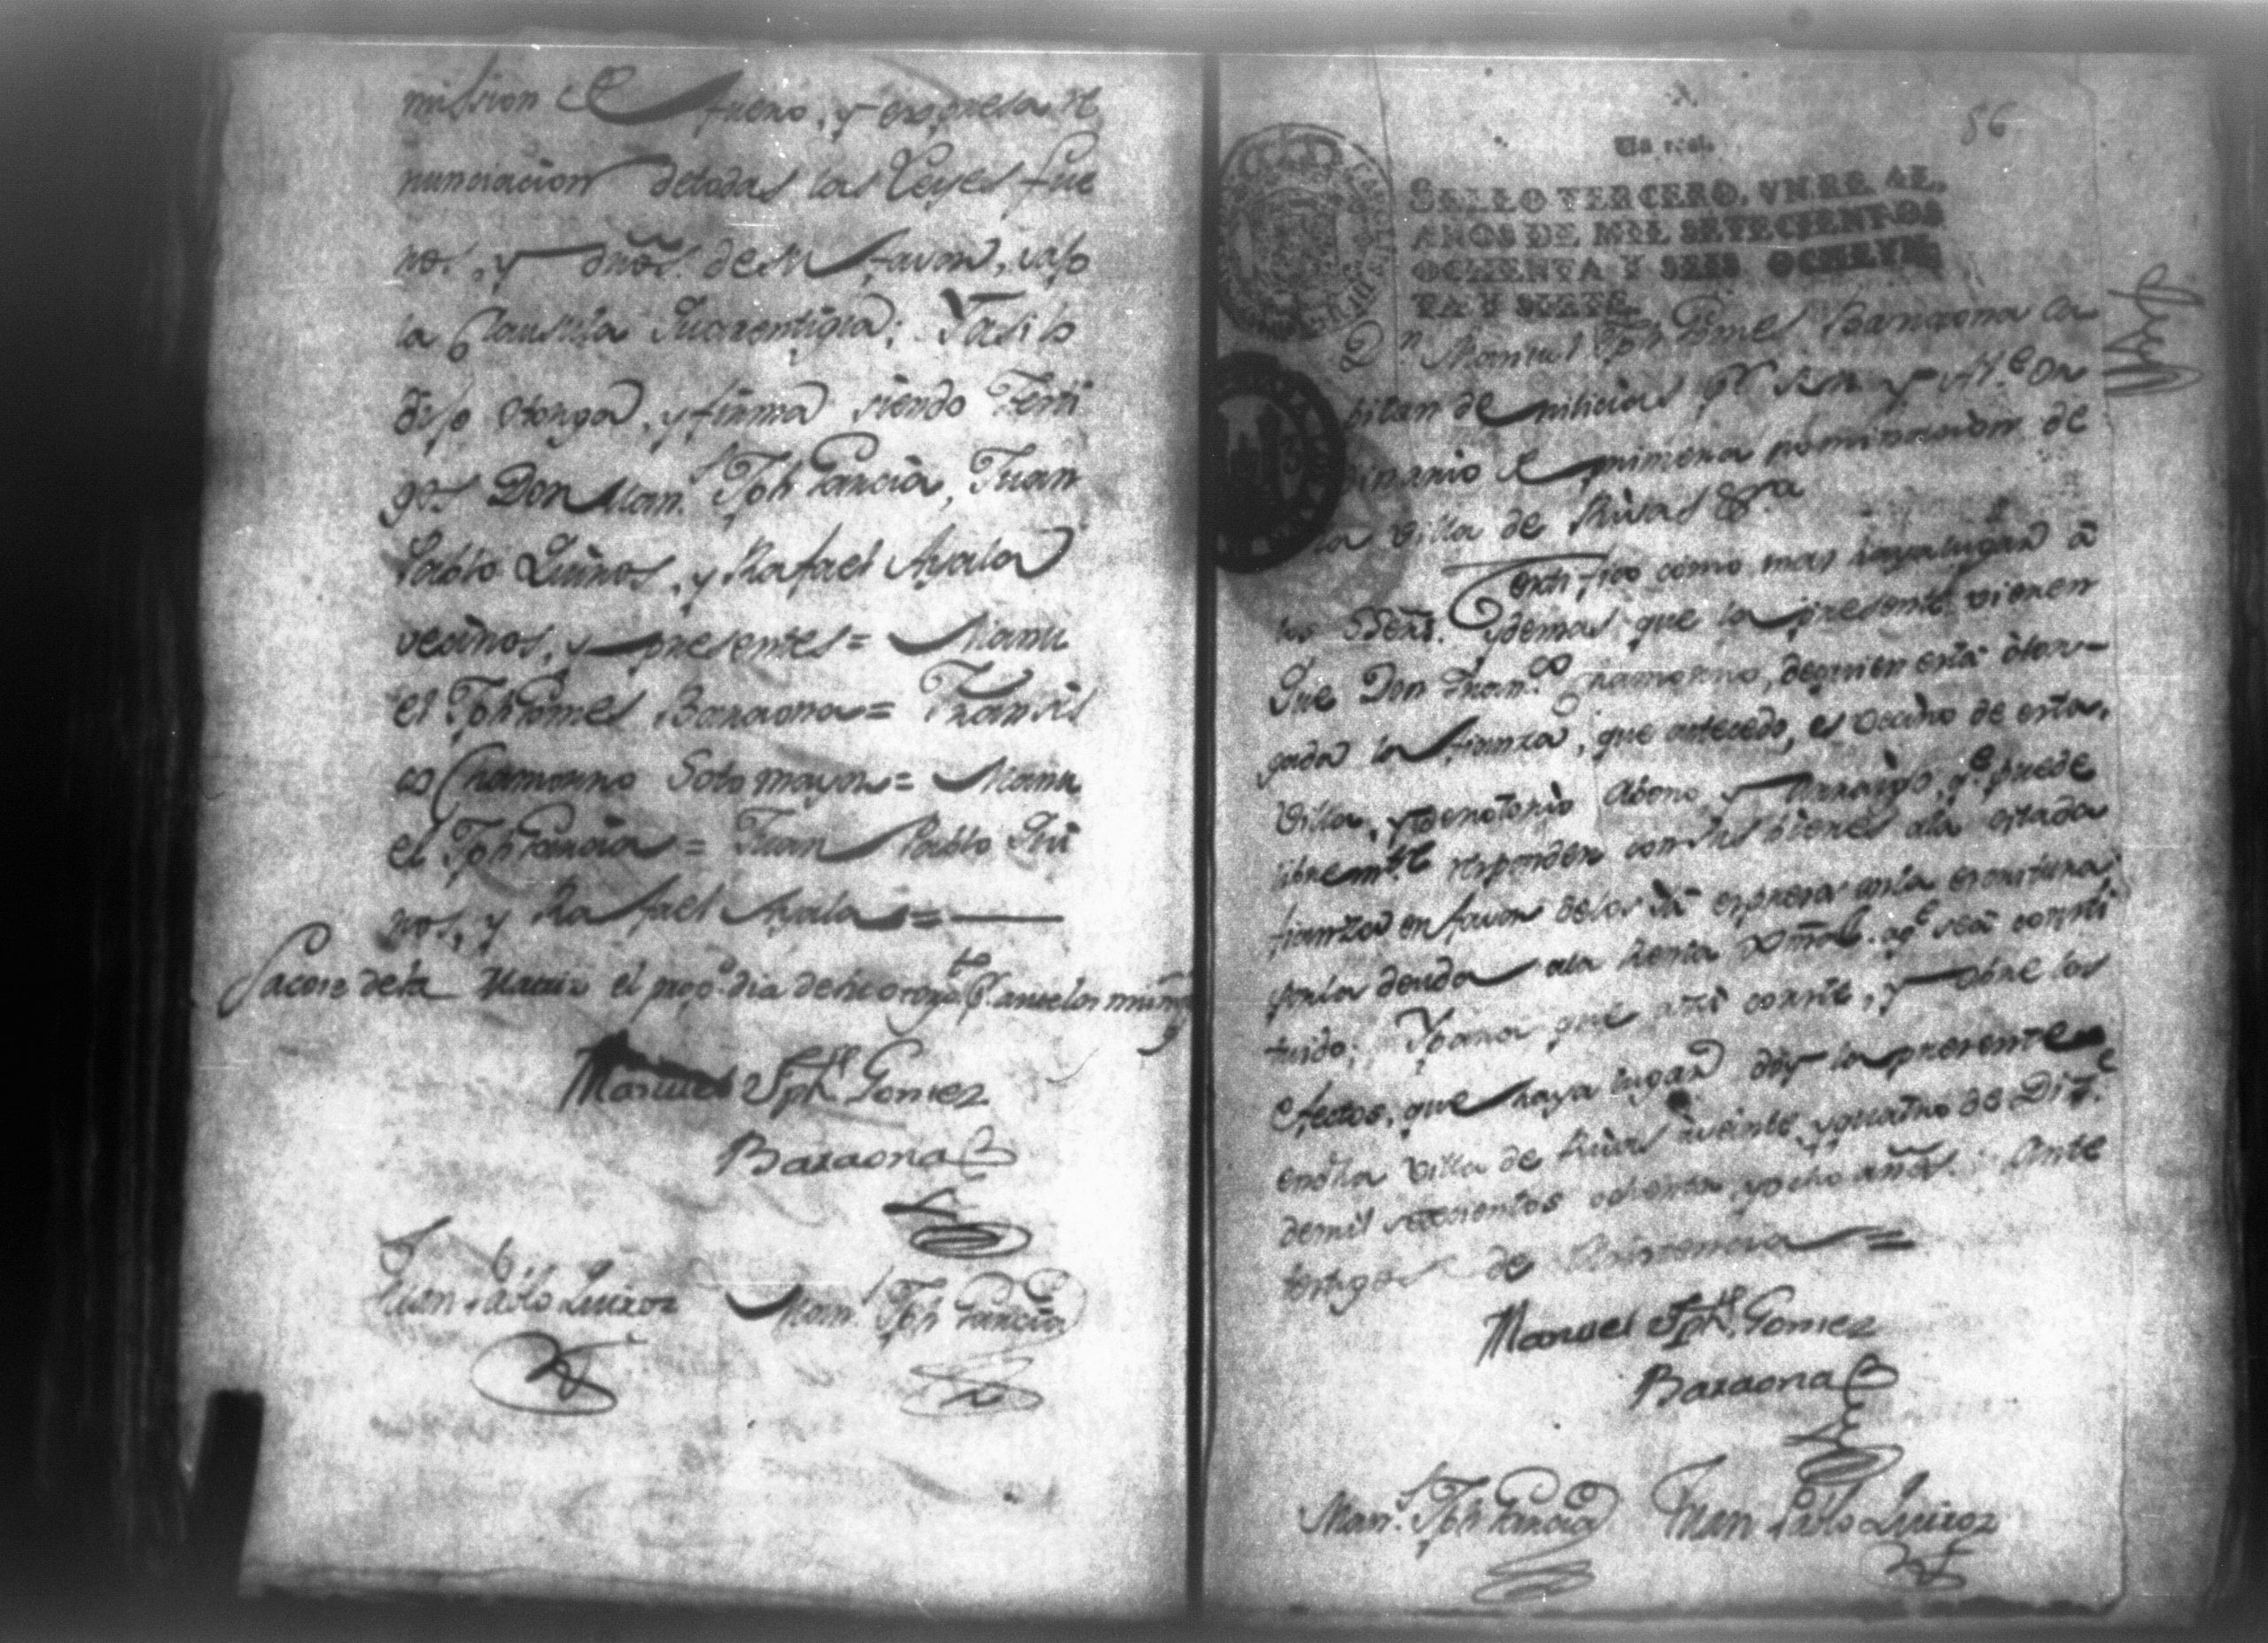 mission de fuero, y expresa re
nunciacion de todas las Leyes fue
ros, y dros. de su favor, vajo
la Clausula Guarentigia: Y asi lo
dijo otorgó, y firmó siendo Testi
gos Don Man.l Jph Garcia, Juan
Pablo Quiros, y Rafael Ayala
vecinos, y presentes = Manu
el Jph Gomes Baraona = Fransis
co Chamorro Sotomayor = Manu
el Jph Garcia = Juan Pablo Qui
ros, y Rafael Ayala =
Sacose de la el dia de su
Manuel Jph Gomez
Baraona
Juan Pablo Quiroz Man.l Jph Garcia
56
Un real.
SELLO TERCERO, UN REAL,
AÑOS DE MIL SETECIENTOS
OCHENTA Y SEIS OCHENTA
TA Y SIETE.
Dn Manuel Jph Gomes Baraona Ca
pitan de milicias pr S.M. y Al.e Or
dinario de primera nominacion de
la Villa de Rivas &ra
Certifico como mas haya lugar á
los SSeñs. y demas que la presente vieren
Que Don Fran.co Chamorro, de quien está otor-
gada la fianza, que antecede, es vecino de esta
Villa, y de notorio Abono y Arraigo, q.e puede
librem.te responder con sus bienes ala citada
fianza en favor de los q.e expresa esta escritura
por la deuda ala Renta q.e se á consti
tuido; Y para que asi conste, y obre los
efectos, que haya lugar doy la presente
en dha Villa de Rivas á veinte y quatro de Diz.e
de mil setecientos ochenta y ocho años. Ante
testigos de Asistencia =
Manuel Jph Gomez
Baraona
Man.l Jph Garcia Juan Pablo Quiroz